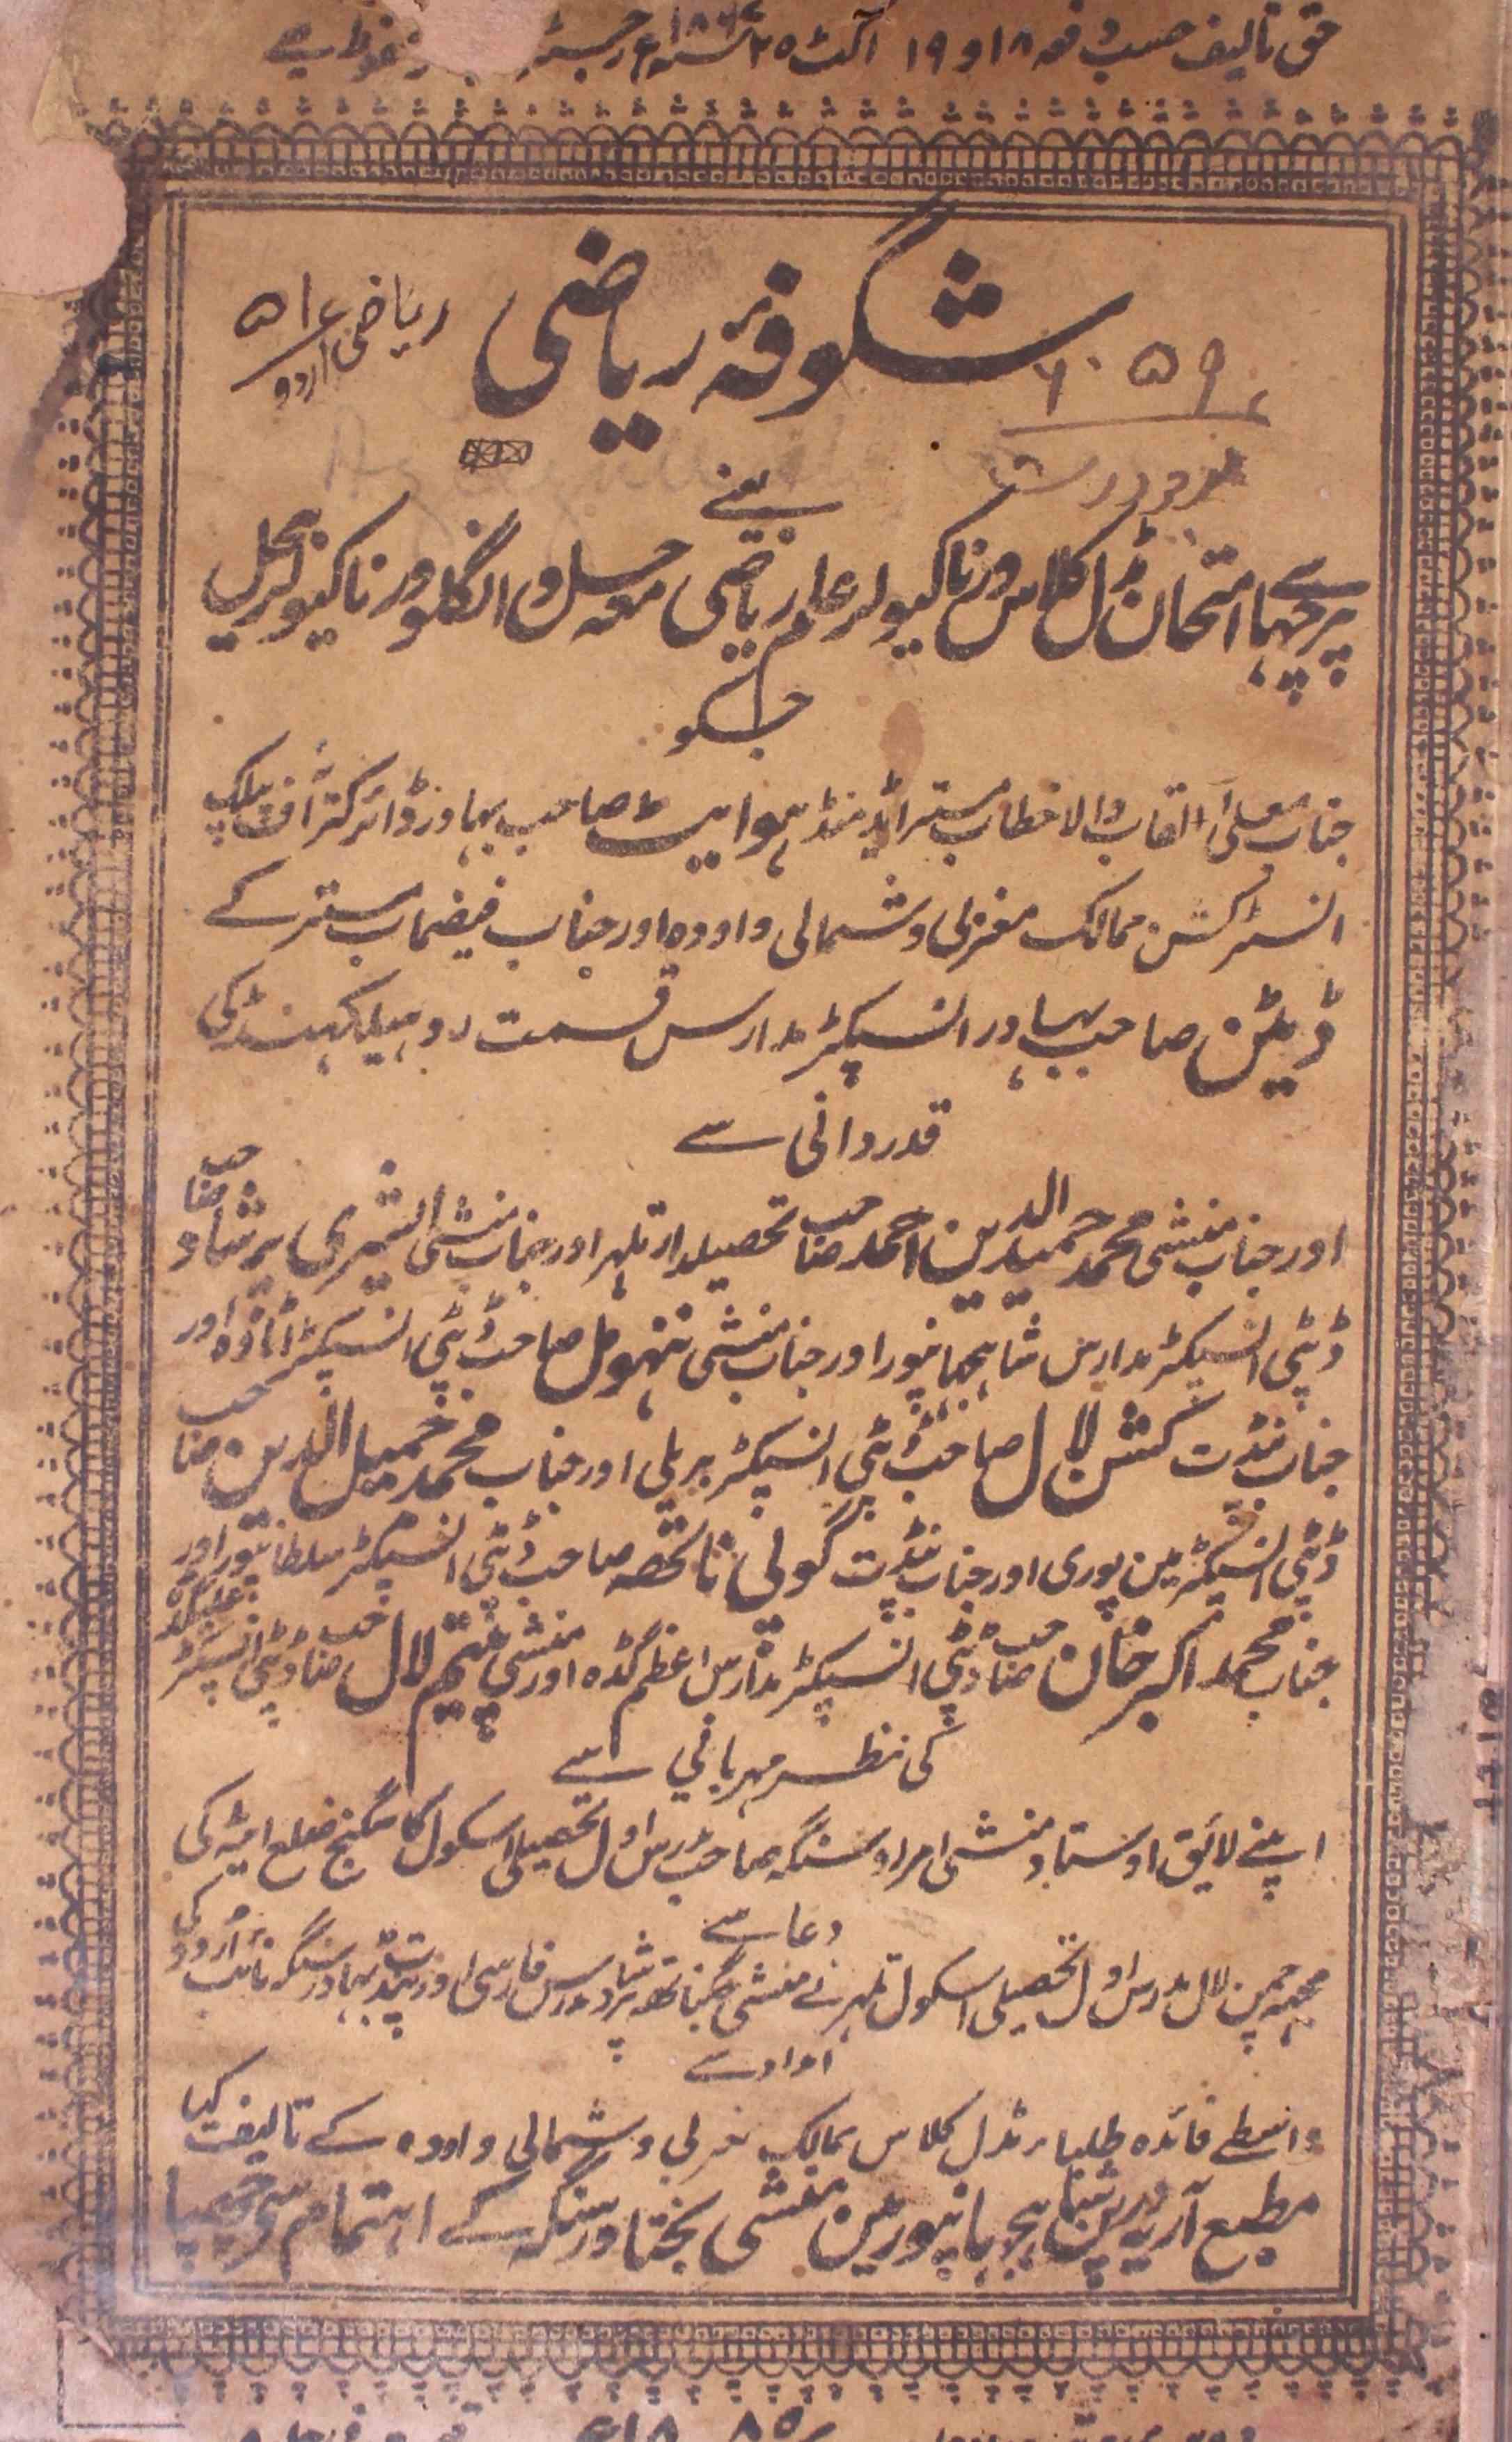 حق تالیف حسب دفعہ ۱۸ و ۱۹ ایکٹ ۲۵ ۱۸۶۷ء رجسٹر محفوظ ہے
شگوفۂ ریاضی
ریاضی ۵۱۶
اردو
۶۰۵۹
یعنے
پرچہاے امتحان مڈل کلاس ورناکیولر علم ریاضی معہ حل و انگلو ورناکیولر
جسکو
جناب معلی القاب والا خطاب مستر اڈمنڈ ہوایٹ صاحب بہادر ڈائرکٹر آف پبلک
انسٹرکشن ممالک مغربی و شمالی و اودہ اور جناب فیضماب مستر کے
ڈیٹن صاحب بہادر انسپکٹر مدارس قسمت روہیلکہنڈ کی
قدردانی سے
اور جناب منشی محمد حمید الدین احمد صاحب تحصیلدار تلہر اور جناب منشی ایشری پرشاد صاحب
ڈپٹی انسپکٹر مدارس شاہجہانپور اور جناب منشی ننہومل صاحب ڈپٹی انسپکٹر اٹاوہ اور
جناب پنڈت کشن لال صاحب ڈپٹی انسپکٹر بریلی اور جناب محمد جمیل الدین صاحب
ڈپٹی انسپکٹر مین پوری اور جناب پنڈت گوپی ناتھہ صاحب ڈپٹی انسپکٹر سلطانپور اور
جناب محمد اکبر خان صاحب ڈپٹی انسپکٹر مدارس اعظم گڈہ اور منشی پیتم لال صاحب ڈپٹی انسپکٹر علیگڈہ
کی نظر مہربانی سے
اپنے لائق اوستاد منشی امراو سنگہ صاحب مدرس اول تحصیلی اسکول کاسگنج ضلع ایٹہ کی
دعا سے
مجہہ چمن لال مدرس اول تحصیلی اسکول تلہر نے منشی جگناتھہ پرشاد مدرس فارسی اور پنڈت بہادر سنگہ نائب اردو کی
امداد سے
واسطے فائدہ طلباء مڈل کلاس ممالک مغربی و شمالی و اودہ کے تالیف کیا
مطبع آریہ درپن شاہجہانپور مین منشی بختاور سنگہ کے اہتمام سے چھپا